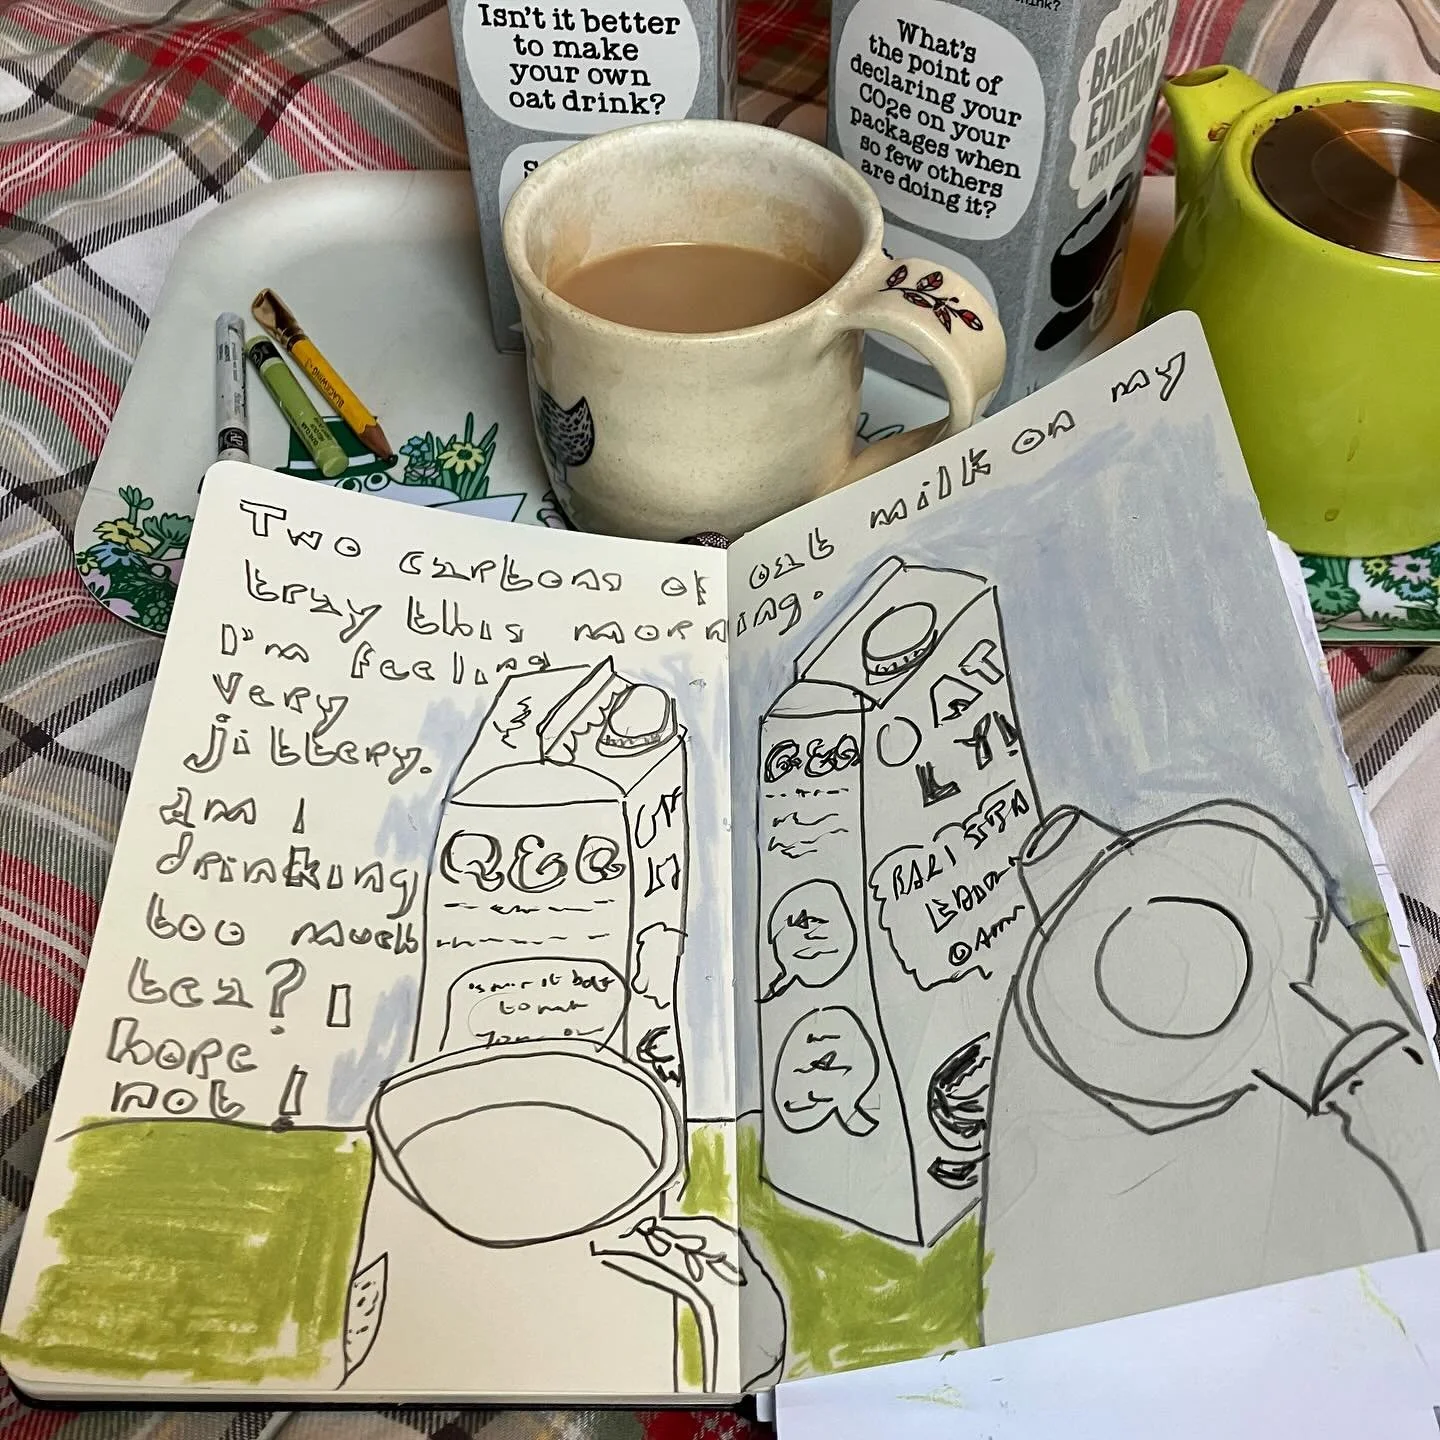 Isn't it better
to make
your own
oat drink?
What's
the point of
declaring your
CO2e on your
packages when
so few others
are doing it?
BARISTA
EDITION
OAT DRINK
BLACKWING
Two cartons of oat milk on my
tray this morning.
I'm feeling
very
jittery.
am I
drinking
too much
tea? I
hope
not!
OAT
LY!